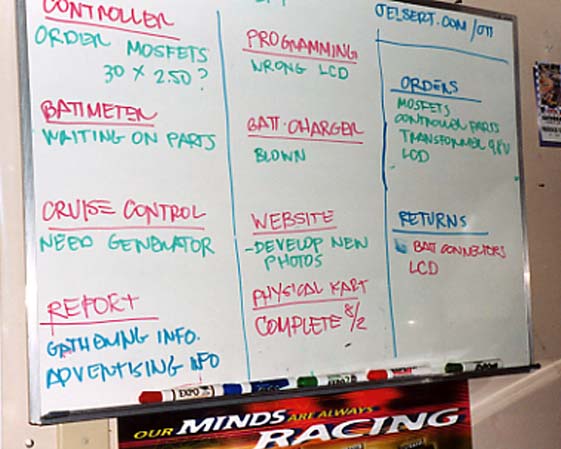 CONTROLLER
ORDER MOSFETS
30 x 2.50?
BATIMETER
WAITING ON PARTS
CRUISE CONTROL
NEED GENERATOR
REPORT
GATHERING INFO.
ADVERTISING INFO
PROGRAMMING
WRONG LCD
BATT. CHARGER
BLOWN
WEBSITE
-DEVELOP NEW
PHOTOS
PHYSICAL KART
COMPLETE 8/2
JELSERT.COM/OTT
ORDERS
MOSFETS
CONTROLLER PARTS
TRANSFORMER 9.8V
LCD
RETURNS
BATT CONNECTORS
LCD
EXPO
EXPO
OUR MINDS ARE ALWAYS
RACING